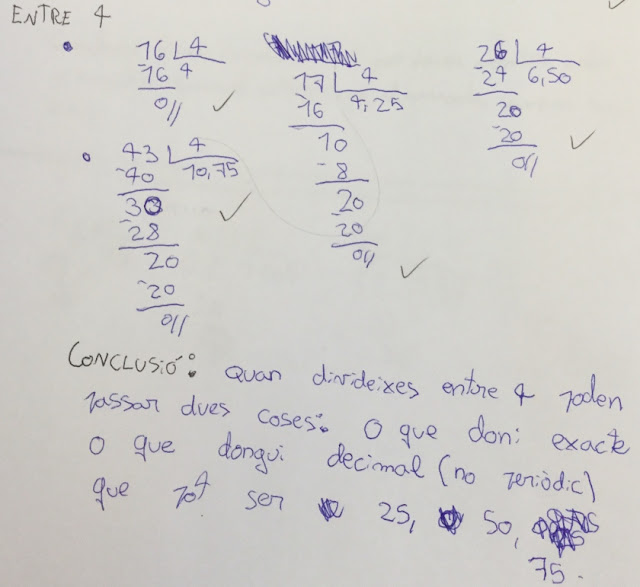 ENTRE 4
16 4
-16 4
0//
17 4
-16 4,25
10
-8
20
-20
0//
26 4
-24 6,50
20
-20
0//
43 4
-40 10,75
30
-28
20
-20
0//
CONCLUSIÓ: quan divideixes entre 4 poden
passar dues coses: O que doni exacte
O que dongui decimal (no periòdic)
que pot ser 25, 50,
75.